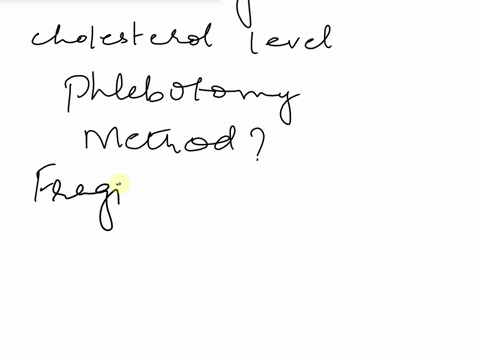 cholesterol level
Phlebotomy
Method?
Fragi